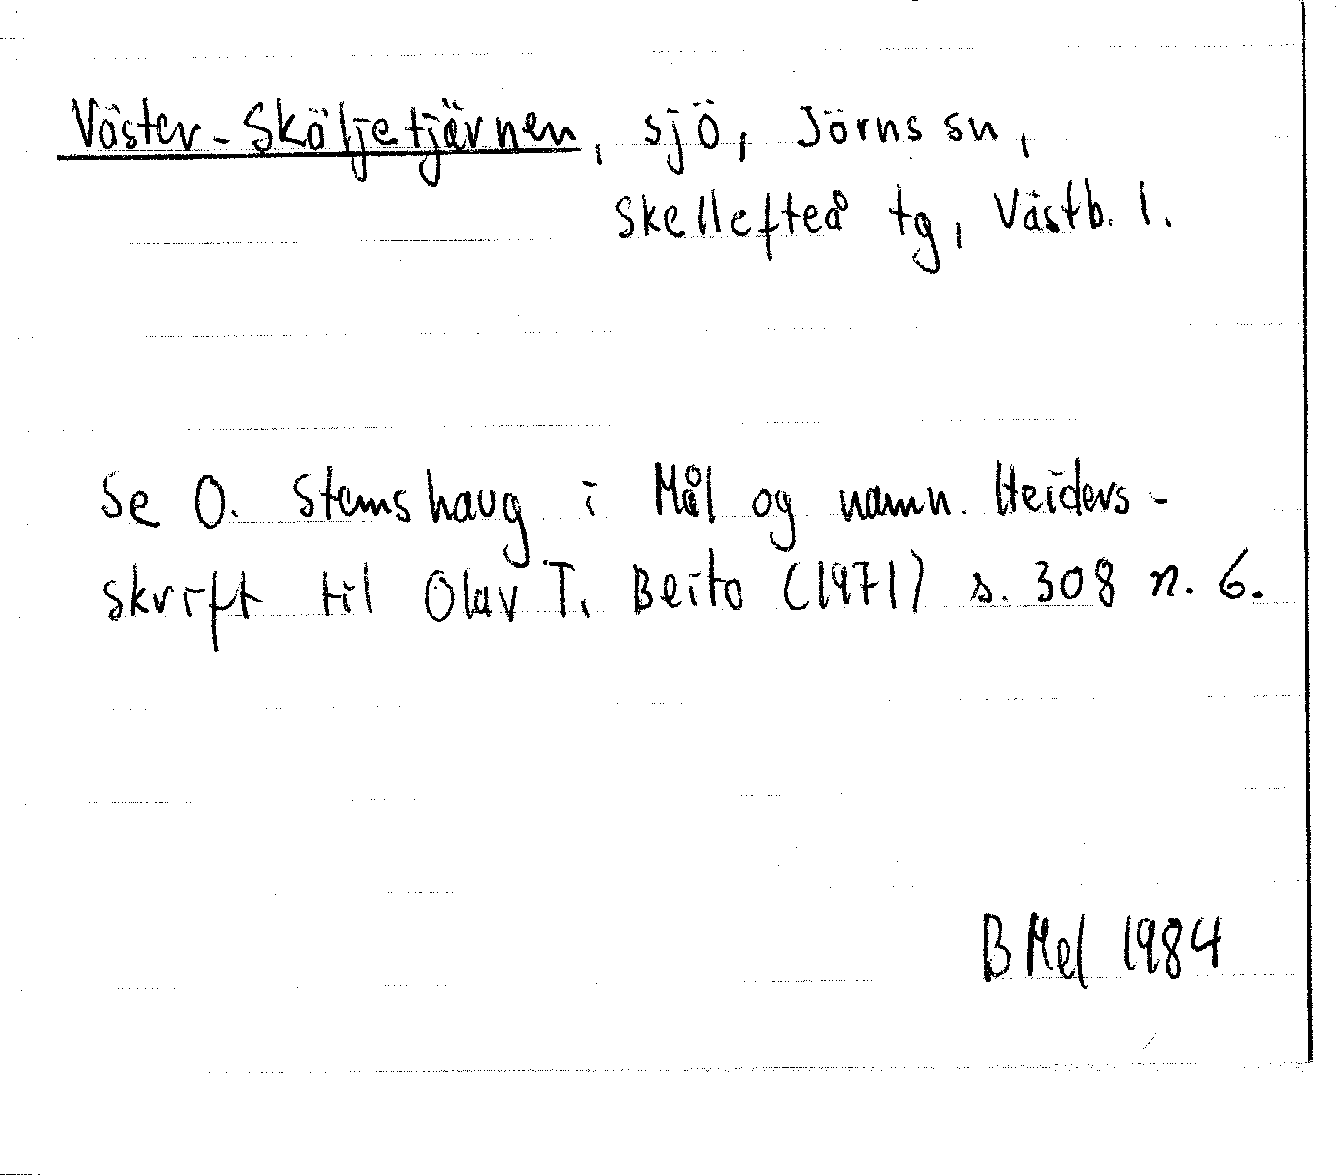 Väster-Sköljetjärnen, sjö, Jörns sn,
Skellefteå tg, Västb. l.
Se O. Stemshaug i Mål og namn. Heiders-
skrift til Olav T. Beito (1971) s. 308 n. 6.
B Mel 1984